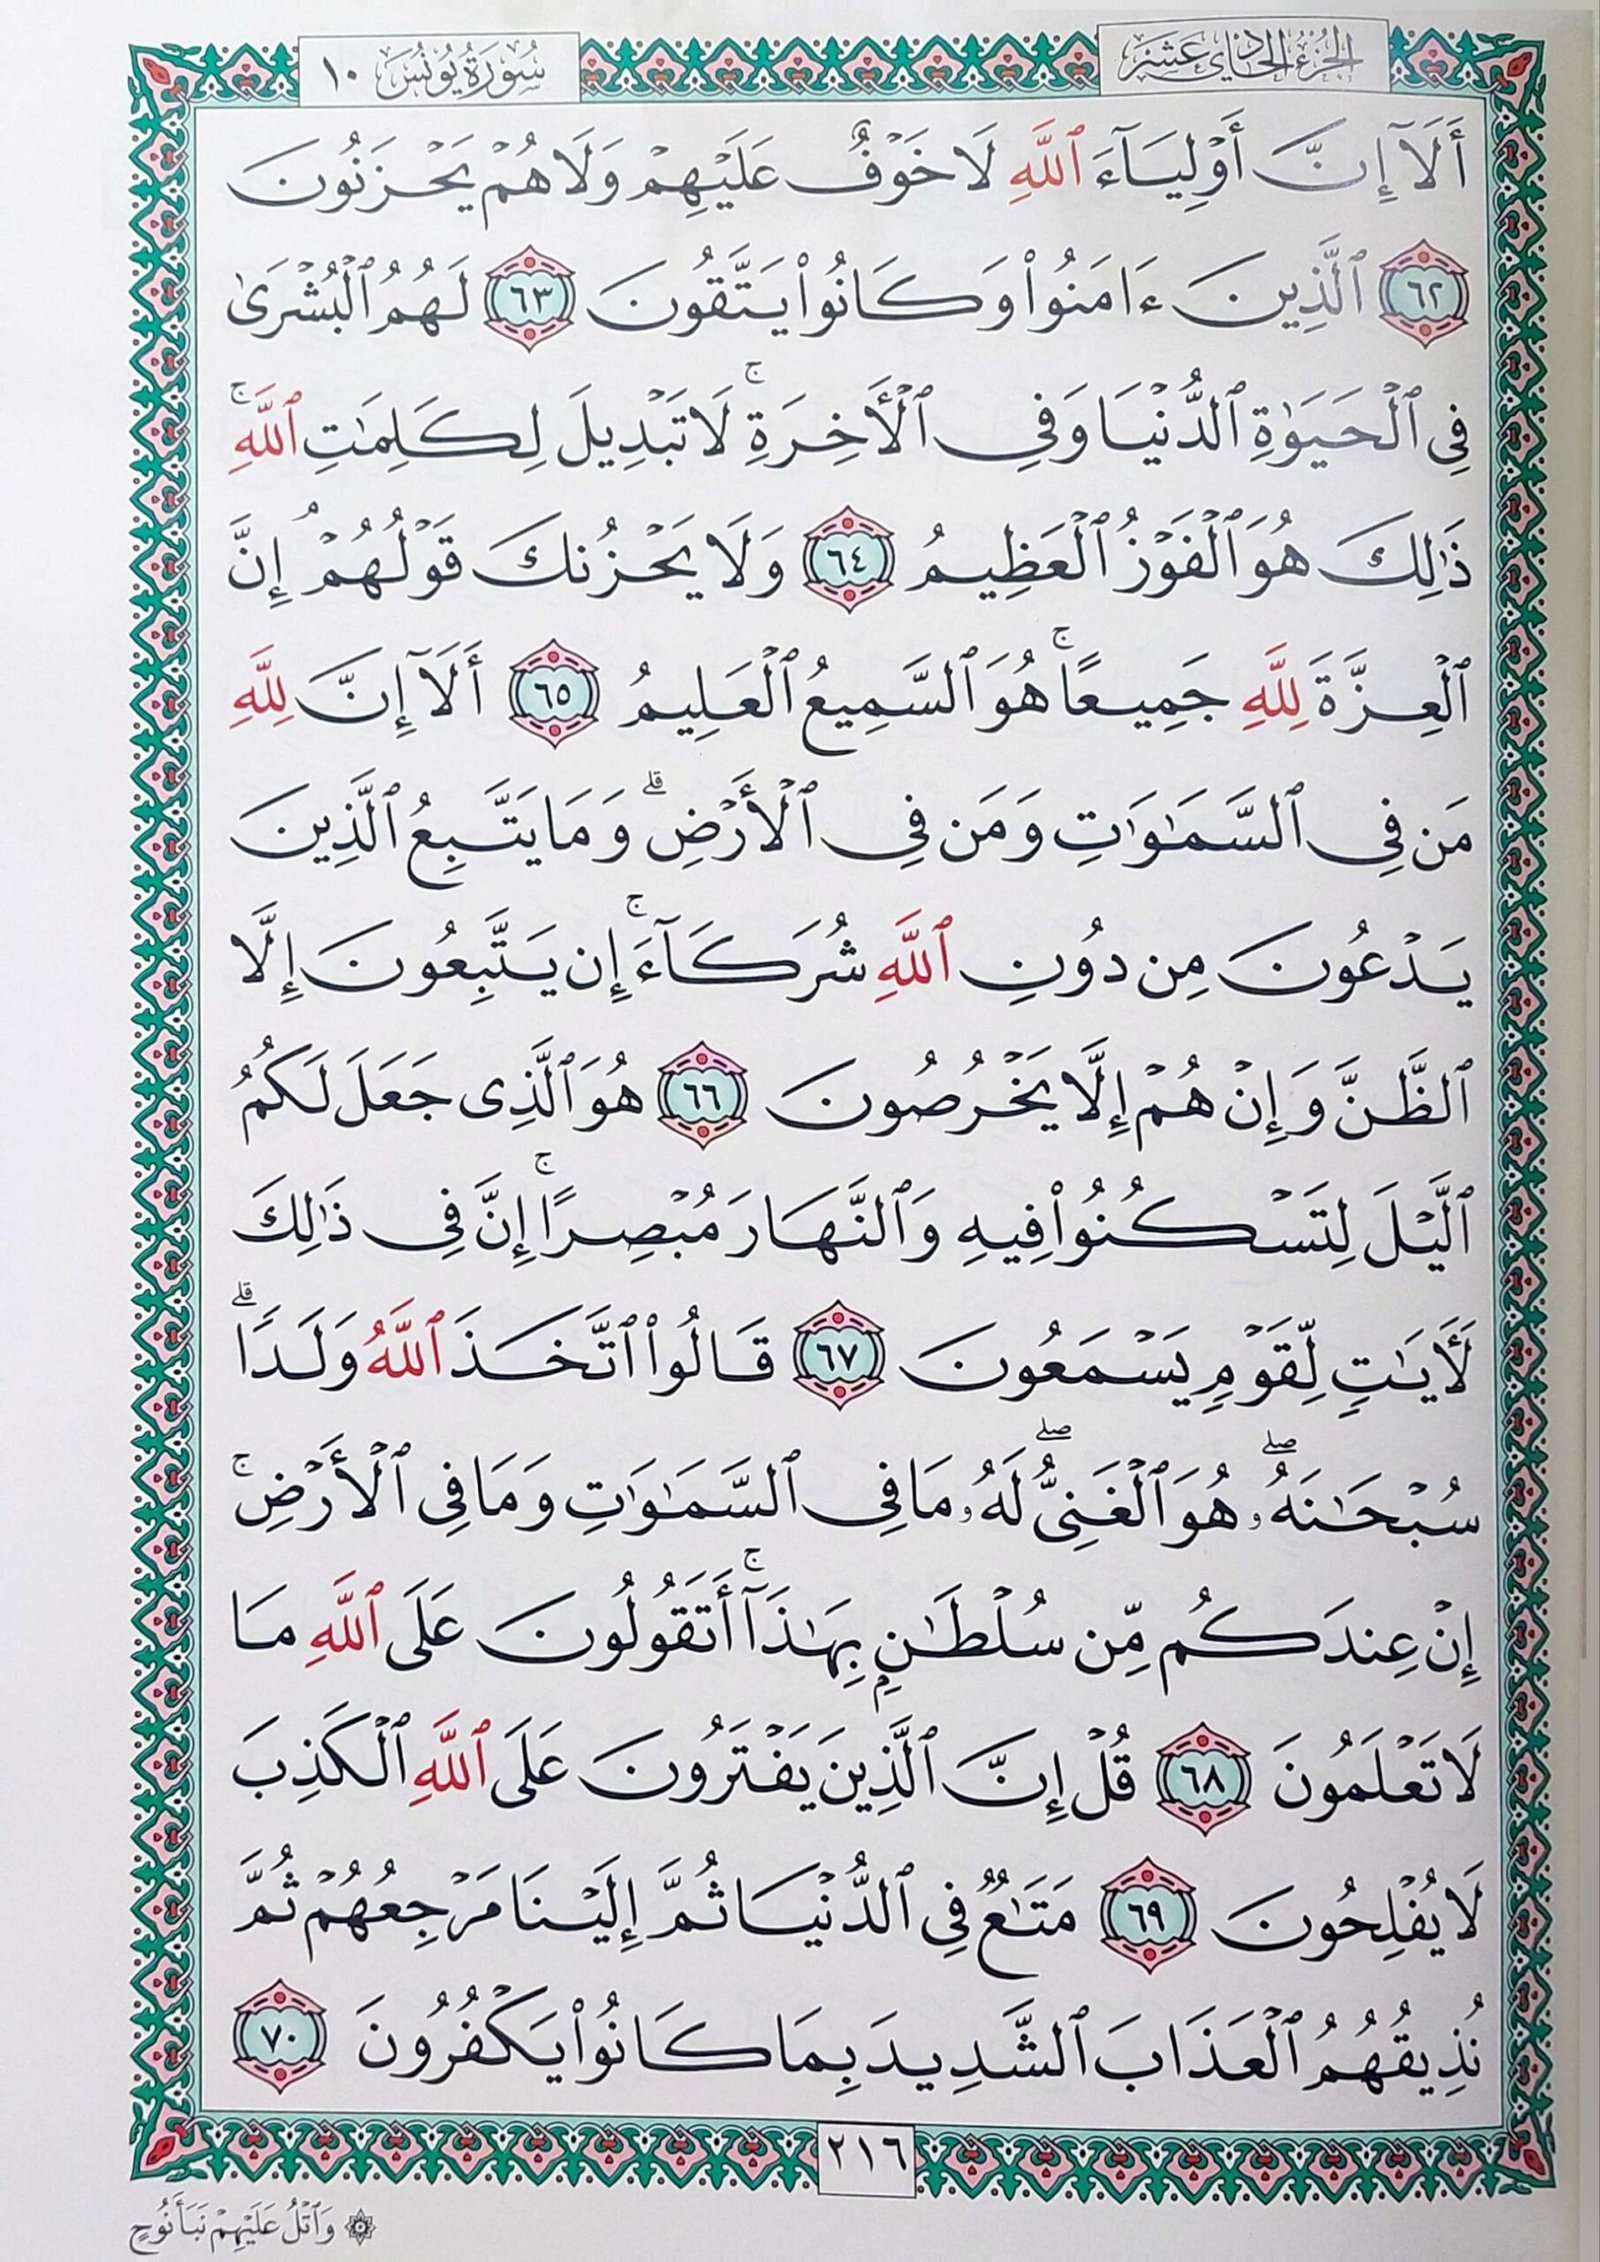 الجزء الحادي عشر
سورة يونس ١٠
أَلَآ إِنَّ أَوْلِيَآءَ ٱللَّهِ لَا خَوْفٌ عَلَيْهِمْ وَلَا هُمْ يَحْزَنُونَ
٦٢ ٱلَّذِينَ ءَامَنُوا۟ وَكَانُوا۟ يَتَّقُونَ ٦٣ لَهُمُ ٱلْبُشْرَىٰ
فِى ٱلْحَيَوٰةِ ٱلدُّنْيَا وَفِى ٱلْأَخِرَةِ ۚ لَا تَبْدِيلَ لِكَلِمَٰتِ ٱللَّهِ ۚ
ذَٰلِكَ هُوَ ٱلْفَوْزُ ٱلْعَظِيمُ ٦٤ وَلَا يَحْزُنكَ قَوْلُهُمْ ۘ إِنَّ
ٱلْعِزَّةَ لِلَّهِ جَمِيعًا ۚ هُوَ ٱلسَّمِيعُ ٱلْعَلِيمُ ٦٥ أَلَآ إِنَّ لِلَّهِ
مَن فِى ٱلسَّمَٰوَٰتِ وَمَن فِى ٱلْأَرْضِ ۗ وَمَا يَتَّبِعُ ٱلَّذِينَ
يَدْعُونَ مِن دُونِ ٱللَّهِ شُرَكَآءَ ۚ إِن يَتَّبِعُونَ إِلَّا
ٱلظَّنَّ وَإِنْ هُمْ إِلَّا يَخْرُصُونَ ٦٦ هُوَ ٱلَّذِى جَعَلَ لَكُمُ
ٱلَّيْلَ لِتَسْكُنُوا۟ فِيهِ وَٱلنَّهَارَ مُبْصِرًا ۚ إِنَّ فِى ذَٰلِكَ
لَأَيَٰتٍ لِّقَوْمٍ يَسْمَعُونَ ٦٧ قَالُوا۟ ٱتَّخَذَ ٱللَّهُ وَلَدًا ۗ
سُبْحَٰنَهُۥ ۖ هُوَ ٱلْغَنِىُّ ۖ لَهُۥ مَا فِى ٱلسَّمَٰوَٰتِ وَمَا فِى ٱلْأَرْضِ ۚ
إِنْ عِندَكُم مِّن سُلْطَٰنٍۭ بِهَٰذَآ ۚ أَتَقُولُونَ عَلَى ٱللَّهِ مَا
لَا تَعْلَمُونَ ٦٨ قُلْ إِنَّ ٱلَّذِينَ يَفْتَرُونَ عَلَى ٱللَّهِ ٱلْكَذِبَ
لَا يُفْلِحُونَ ٦٩ مَتَٰعٌ فِى ٱلدُّنْيَا ثُمَّ إِلَيْنَا مَرْجِعُهُمْ ثُمَّ
نُذِيقُهُمُ ٱلْعَذَابَ ٱلشَّدِيدَ بِمَا كَانُوا۟ يَكْفُرُونَ ٧٠
٢١٦
۞ وَٱتْلُ عَلَيْهِمْ نَبَأَ نُوحٍ